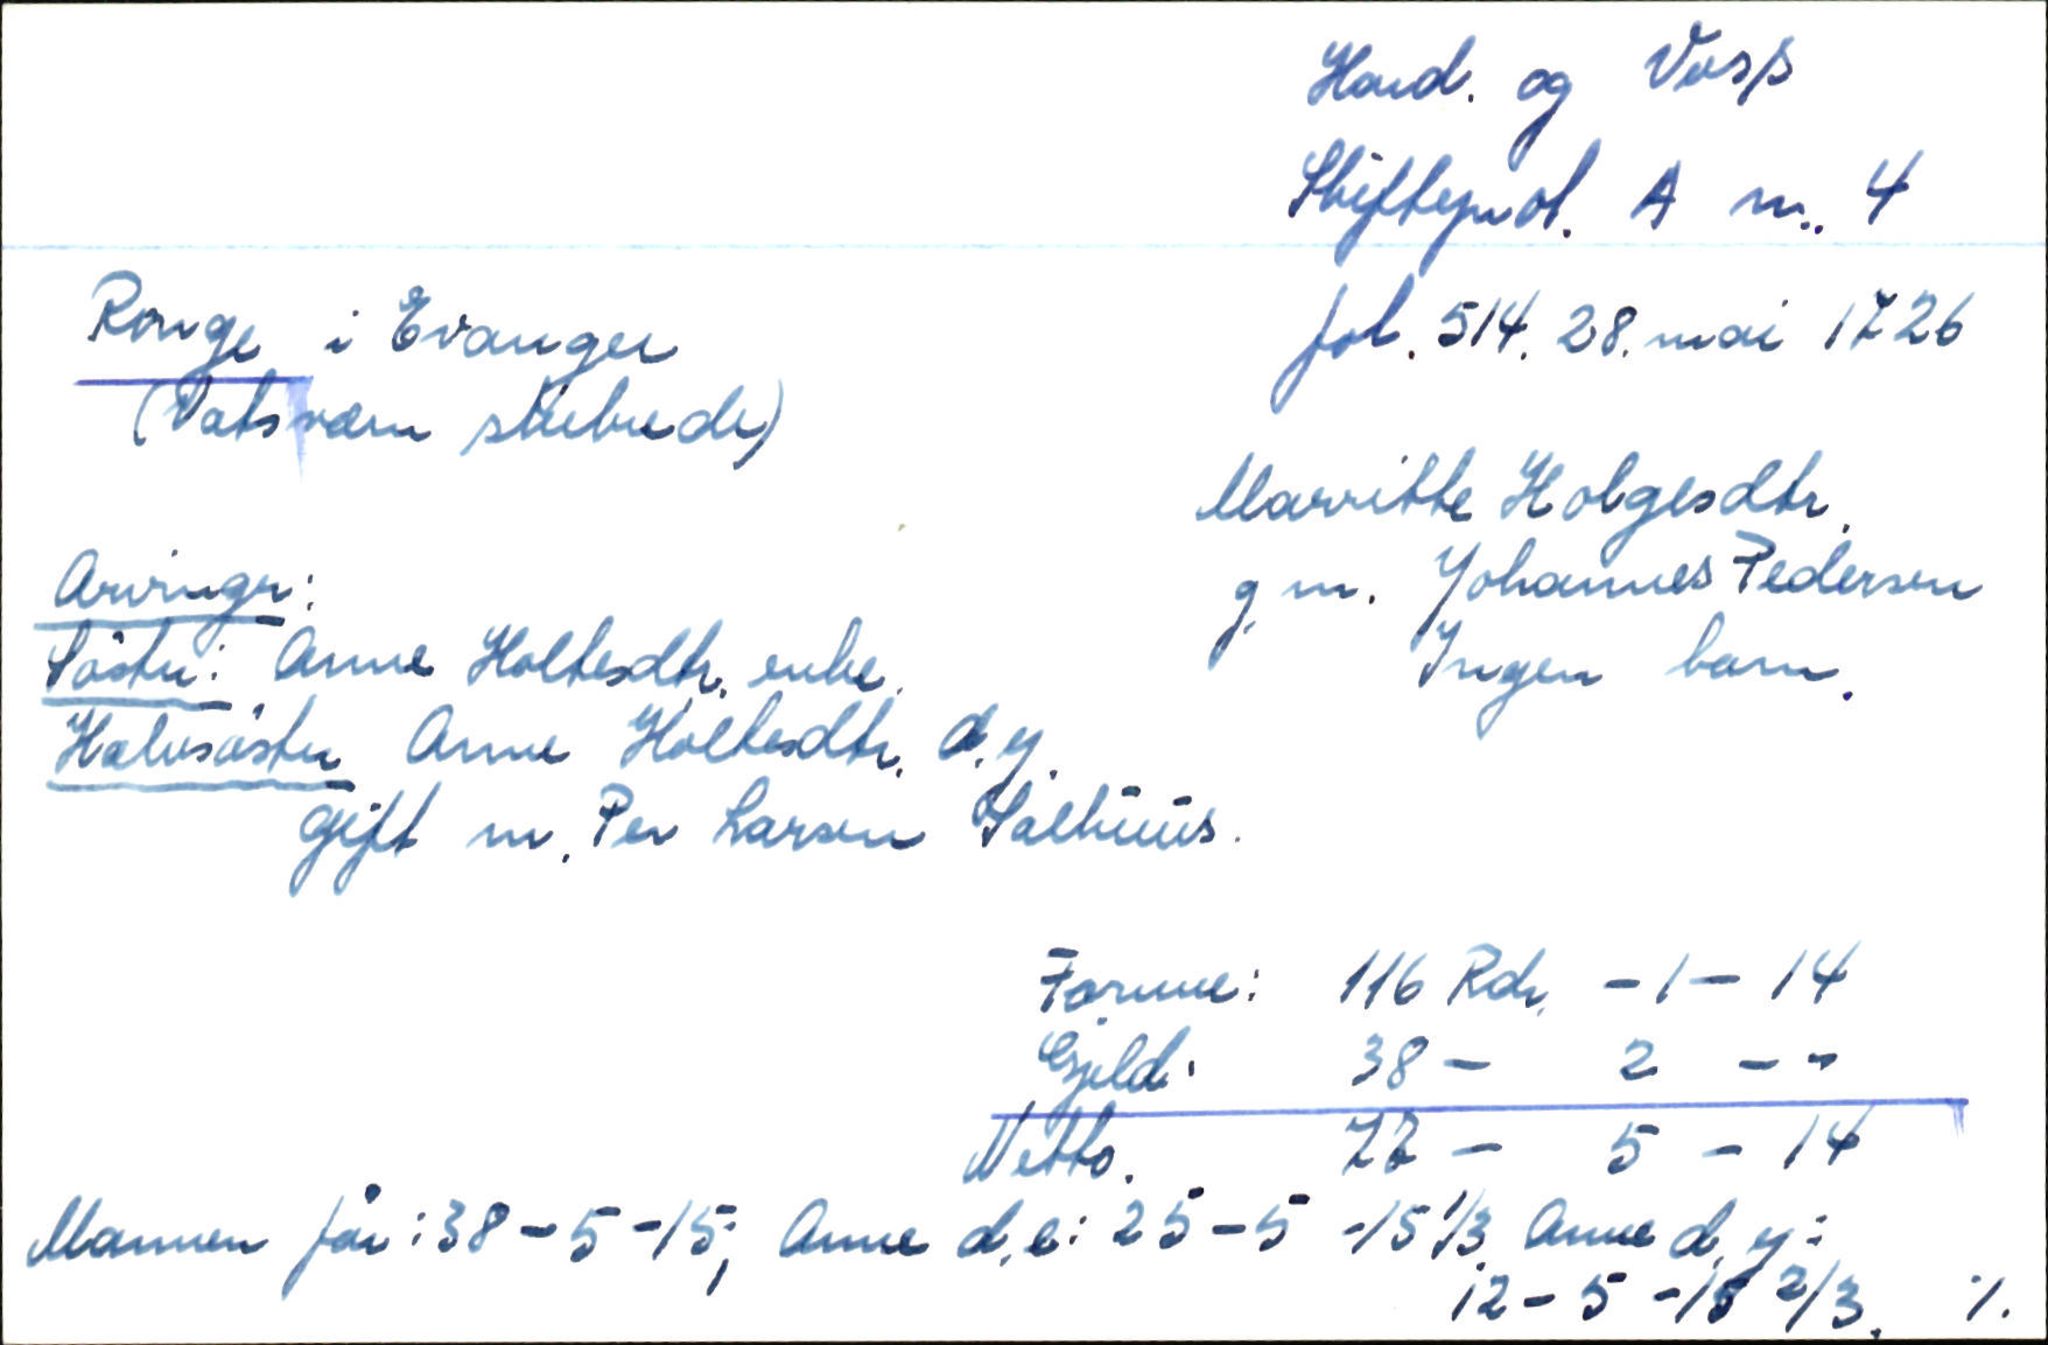 Hard. og Voss
Skifteprot. A nr. 4
fol. 514. 28. mai 1726
Ronge i Evanger
(Vatsværn skibrede)
Marritte Holgesdtr.
g. m. Johannes Pedersen
Ingen barn.
Arvinger:
Søster: Anne Holtesdtr. enke.
Halvsøster Anne Holtesdtr. d.y.
gift m. Per Larsen Salhuus.
Formue: 116 Rdr. - 1 - 14
Gjeld: 38 - 2 - -
Netto. 77 - 5 - 14
Mannen får: 38 - 5 - 15; Anne d.e: 25 - 5 - 15 1/3 Anne d.y:
12 - 5 - 15 2/3. ./.